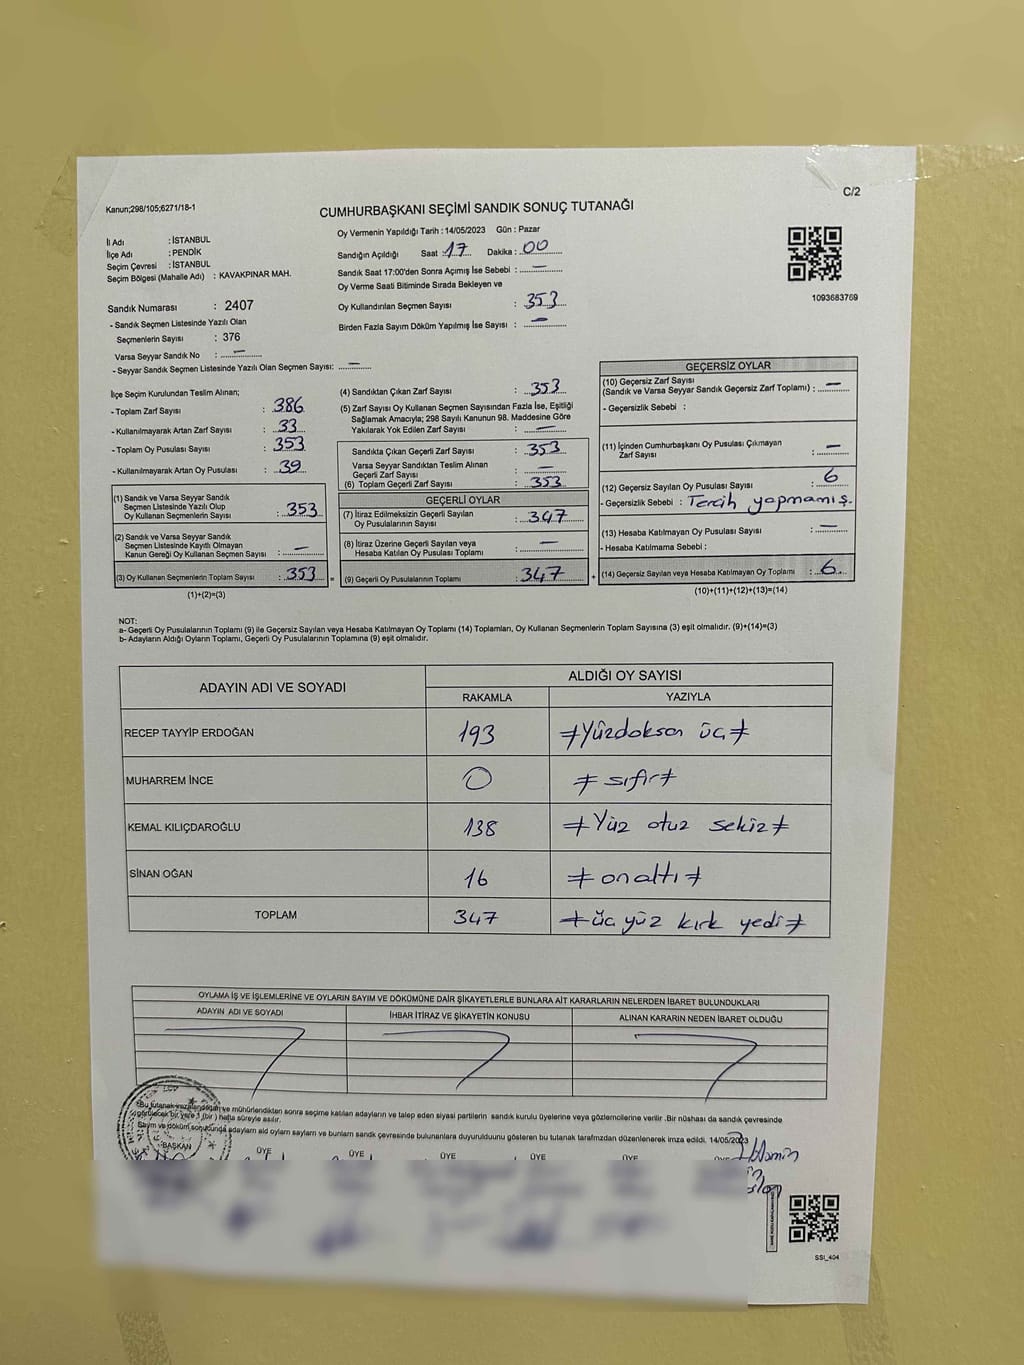 C/2
Kanun;298/105;6271/18-1
CUMHURBAŞKANI SEÇİMİ SANDIK SONUÇ TUTANAĞI
İl Adı : İSTANBUL
İlçe Adı : PENDİK
Seçim Çevresi : İSTANBUL
Seçim Bölgesi (Mahalle Adı) : KAVAKPINAR MAH.
Sandık Numarası : 2407
- Sandık Seçmen Listesinde Yazılı Olan
Seçmenlerin Sayısı : 376
Varsa Seyyar Sandık No : —
- Seyyar Sandık Seçmen Listesinde Yazılı Olan Seçmen Sayısı: —
Oy Vermenin Yapıldığı Tarih : 14/05/2023 Gün : Pazar
Sandığın Açıldığı Saat : 17 Dakika : 00
Sandık Saat 17:00'den Sonra Açımış İse Sebebi : —
Oy Verme Saati Bitiminde Sırada Bekleyen ve
Oy Kullandırılan Seçmen Sayısı : 353
Birden Fazla Sayım Döküm Yapılmış İse Sayısı : —
1093683769
İlçe Seçim Kurulundan Teslim Alınan;
- Toplam Zarf Sayısı : 386
- Kullanılmayarak Artan Zarf Sayısı : 33
- Toplam Oy Pusulası Sayısı : 353
- Kullanılmayarak Artan Oy Pusulası : 39
(1) Sandık ve Varsa Seyyar Sandık
Seçmen Listesinde Yazılı Olup
Oy Kullanan Seçmenlerin Sayısı : 353
(2) Sandık ve Varsa Seyyar Sandık
Seçmen Listesinde Kayıtlı Olmayan
Kanun Gereği Oy Kullanan Seçmen Sayısı : —
(3) Oy Kullanan Seçmenlerin Toplam Sayısı : 353 =
(1)+(2)=(3)
(4) Sandıktan Çıkan Zarf Sayısı : 353
(5) Zarf Sayısı Oy Kullanan Seçmen Sayısından Fazla İse, Eşitliği
Sağlamak Amacıyla; 298 Sayılı Kanunun 98. Maddesine Göre
Yakılarak Yok Edilen Zarf Sayısı : —
Sandıkta Çıkan Geçerli Zarf Sayısı : 353
Varsa Seyyar Sandıktan Teslim Alınan
Geçerli Zarf Sayısı : —
(6) Toplam Geçerli Zarf Sayısı : 353
GEÇERLİ OYLAR
(7) İtiraz Edilmeksizin Geçerli Sayılan
Oy Pusulalarının Sayısı : 347
(8) İtiraz Üzerine Geçerli Sayılan veya
Hesaba Katılan Oy Pusulası Toplamı : —
(9) Geçerli Oy Pusulalarının Toplamı : 347 +
GEÇERSİZ OYLAR
(10) Geçersiz Zarf Sayısı
(Sandık ve Varsa Seyyar Sandık Geçersiz Zarf Toplamı) : —
- Geçersizlik Sebebi :
(11) İçinden Cumhurbaşkanı Oy Pusulası Çıkmayan
Zarf Sayısı : —
(12) Geçersiz Sayılan Oy Pusulası Sayısı : 6
- Geçersizlik Sebebi : Tercih yapmamış.
(13) Hesaba Katılmayan Oy Pusulası Sayısı : —
- Hesaba Katılmama Sebebi :
(14) Geçersiz Sayılan veya Hesaba Katılmayan Oy Toplamı : 6
(10)+(11)+(12)+(13)=(14)
NOT:
a- Geçerli Oy Pusulalarının Toplamı (9) ile Geçersiz Sayılan veya Hesaba Katılmayan Oy Toplamı (14) Toplamları, Oy Kullanan Seçmenlerin Toplam Sayısına (3) eşit olmalıdır. (9)+(14)=(3)
b- Adayların Aldığı Oyların Toplamı, Geçerli Oy Pusulalarının Toplamına (9) eşit olmalıdır.
ADAYIN ADI VE SOYADI ALDIĞI OY SAYISI
RAKAMLA YAZIYLA
RECEP TAYYİP ERDOĞAN 193 ≠Yüzdoksan üç≠
MUHARREM İNCE 0 ≠ sıfır≠
KEMAL KILIÇDAROĞLU 138 ≠Yüz otuz sekiz≠
SİNAN OĞAN 16 ≠onaltı≠
TOPLAM 347 ≠üçyüz kırk yedi≠
OYLAMA İŞ VE İŞLEMLERİNE VE OYLARIN SAYIM VE DÖKÜMÜNE DAİR ŞİKAYETLERLE BUNLARA AİT KARARLARIN NELERDEN İBARET BULUNDUKLARI
ADAYIN ADI VE SOYADI İHBAR İTİRAZ VE ŞİKAYETİN KONUSU ALINAN KARARIN NEDEN İBARET OLDUĞU
Bu tutanak imzalandıktan ve mühürlendikten sonra seçime katılan adayların ve talep eden siyasi partilerin sandık kurulu üyelerine veya gözlemcilerine verilir .Bir nüshası da sandık çevresinde
görülecek bir yere 1 (bir ) hafta süreyle asılır.
Sayım ve döküm sonucunda adayların aldı oyların sayıların ve bunların sandık çevresinde bulunanlara duyurulduunu gösteren bu tutanak tarafımızdan düzenlenerek imza edildi. 14/05/2023
BAŞKAN ÜYE ÜYE ÜYE ÜYE ÜYE ÜYE
SSI_404